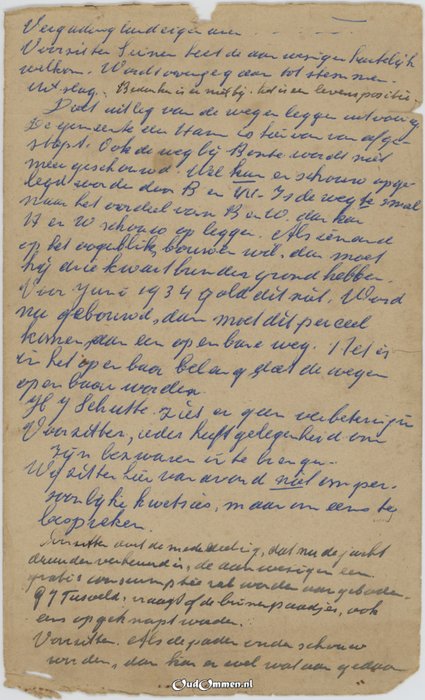 Vergadering landeigenaren.
Voorzitter Suisen heet de aanwezigen hartelijk
welkom. Wordt overgegaan tot stemmen.
uitslag. is er niet bij. het is een levenspositie.
Doet uitleg van de wegen leggen uitvoerig.
De gemeente een Ham is hiervan afge-
stapt. Ook de weg bij Bonte wordt niet
meer geschouwd. Wel kan er schouw opge-
legd worden door B en W. Is de weg te smal
naar het oordeel van B en W. dan kan
B en W schouw op leggen. Als iemand
op het oogenblik bouwen wil, dan moet
hij drie kwart bunder grond hebben.
Voor Juni 1934 gold dit niet. Word
nu gebouwd, dan moet dit perceel
komen aan een openbare weg. Het is
in het openbaar belang dat de wegen
openbaar worden.
H J Schutte. ziet er geen verbetering in
Voorzitter, ieder heeft gelegenheid om
zijn bezwaren in te brengen.
Wij zitten hier van avond niet om per-
soonlijke kwesties, maar om eens te
bespreken.
Voorzitter doet de mededeeling, dat nu de jacht
weer verhuurd is, de aanwezigen een
gratis consumptie zal worden aangeboden.
G J Tusveld, vraagt of de binnenpaadjes, ook
eens opgeknapt worden.
Voorzitter. Als de paden onder schouw
worden, dan kan er wel wat aan gedaan
OudOmmen.nl